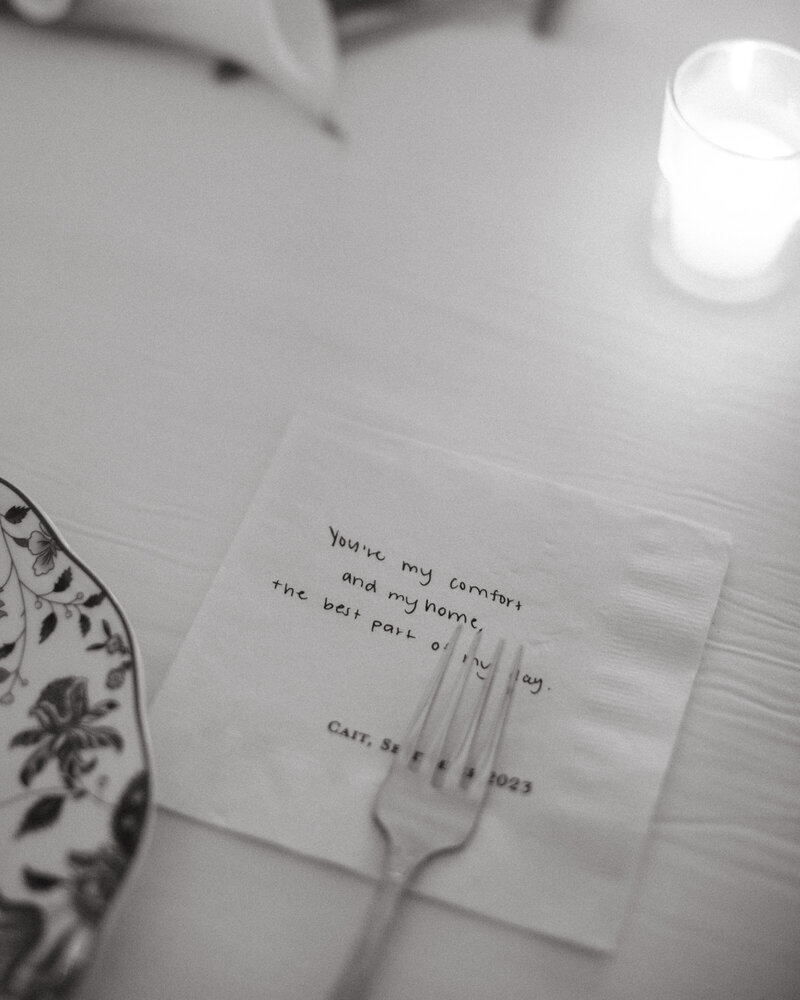 You're my comfort
and my home,
the best part of my day.
CAIT, 2023